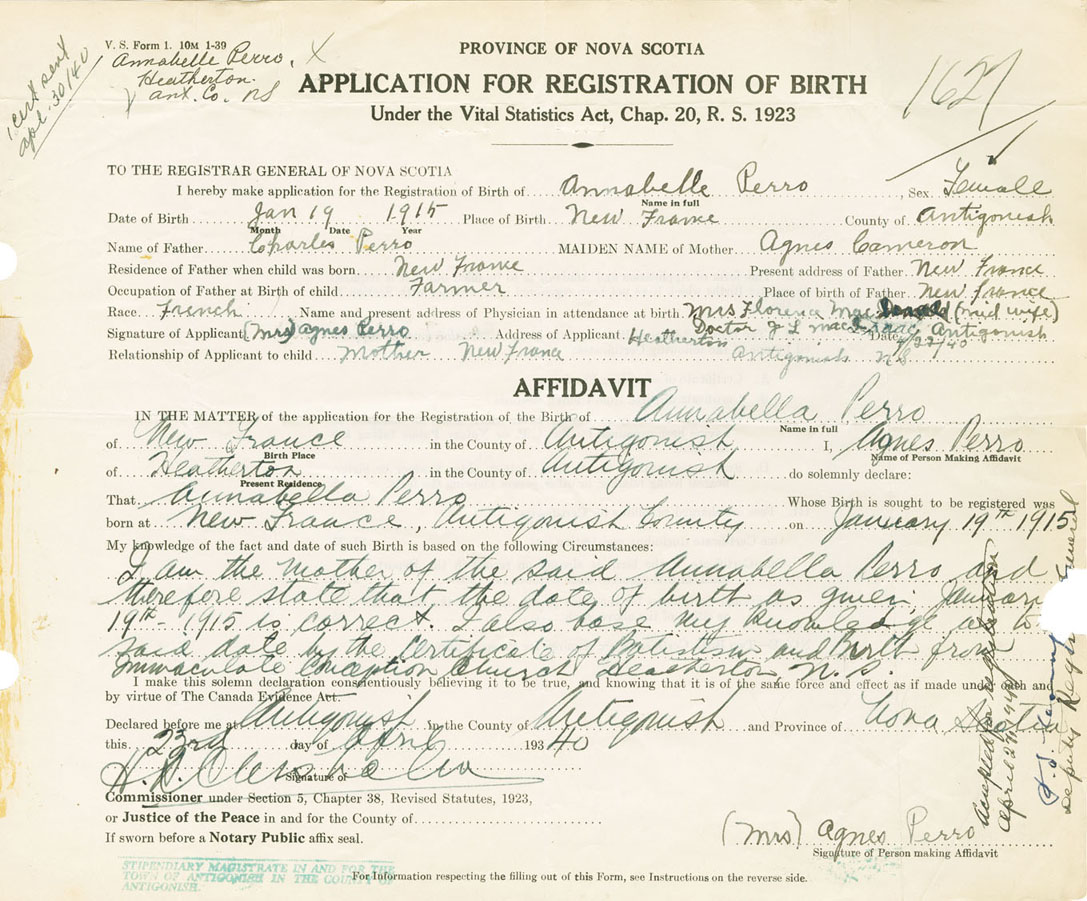 V. S. Form 1. 10M 1-39
Annabelle Perro, X
Heatherton.
Ant. Co. NS
1 cert sent
apl. 30/40
1627
PROVINCE OF NOVA SCOTIA
APPLICATION FOR REGISTRATION OF BIRTH
Under the Vital Statistics Act, Chap. 20, R. S. 1923
TO THE REGISTRAR GENERAL OF NOVA SCOTIA
I hereby make application for the Registration of Birth of Annabelle Perro, Sex. Female
Name in full
Date of Birth Jan 19 1915 Place of Birth New France County of Antigonish
Month Date Year
Name of Father Charles Perro MAIDEN NAME of Mother Agnes Cameron
Residence of Father when child was born New France Present address of Father New France
Occupation of Father at Birth of child Farmer Place of birth of Father New France
Race French Name and present address of Physician in attendance at birth Mrs Florence MacDonald (mid wife)
Doctor J L MacIsaac Antigonish
Signature of Applicant (Mrs) Agnes Perro Address of Applicant Heatherton Date 4/22/40
Relationship of Applicant to child Mother New France Antigonish NS
AFFIDAVIT
IN THE MATTER of the application for the Registration of the Birth of Annabella Perro
Name in full
of New France in the County of Antigonish I, Agnes Perro
Birth Place Name of Person Making Affidavit
of Heatherton in the County of Antigonish do solemnly declare:
Present Residence
That Annabella Perro Whose Birth is sought to be registered was
born at New France, Antigonish County on January 19th 1915
My knowledge of the fact and date of such Birth is based on the following Circumstances:
I am the mother of the said Annabella Perro and
therefore state that the date of birth as given, January
19th - 1915 is correct. I also base my knowledge as to
said date by the Certificate of Batistism and Birth from
Immaculate Conception Church Heatherton N.S.
I make this solemn declaration conscientiously believing it to be true, and knowing that it is of the same force and effect as if made under oath and
by virtue of The Canada Evidence Act.
Declared before me at Antigonish In the County of Antigonish and Province of Nova Scotia
this 23rd day of April 193 40
Signature of
Commissioner under Section 5, Chapter 38, Revised Statutes, 1923,
or Justice of the Peace in and for the County of
If sworn before a Notary Public affix seal.
(Mrs) Agnes Perro
Signature of Person making Affidavit
STIPENDIARY MAGISTRATE IN AND FOR THE
TOWN OF ANTIGONISH IN THE COUNTY OF
ANTIGONISH.
For Information respecting the filling out of this Form, see Instructions on the reverse side.
Accepted for registration
April
Deputy Registrar General